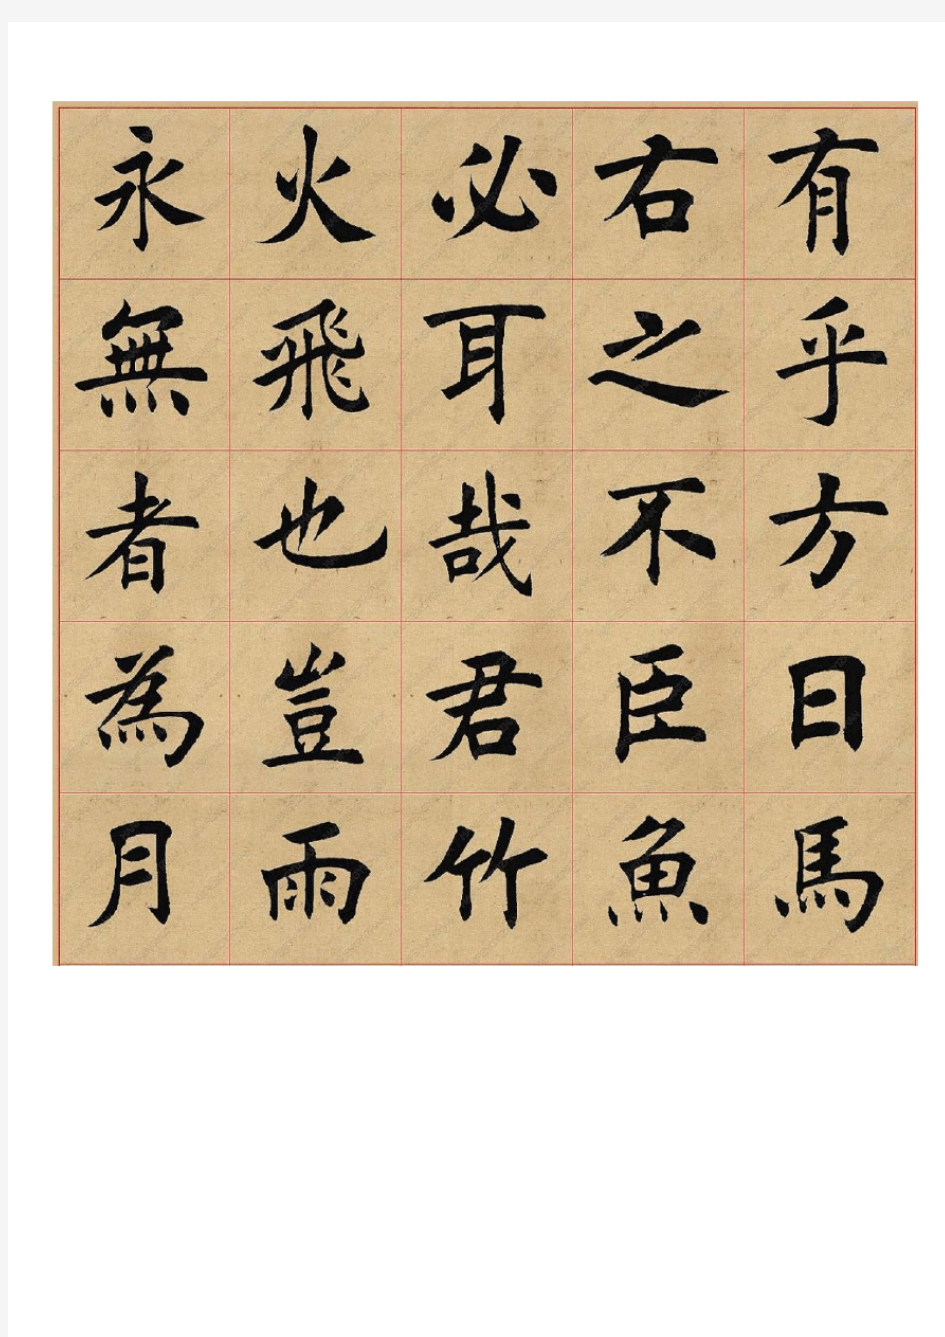 永火必右有
無飛耳之乎
者也哉不方
為豈君臣日
月雨竹魚馬